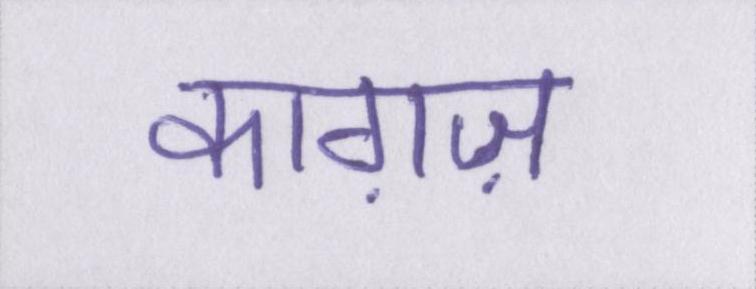 काग़ज़